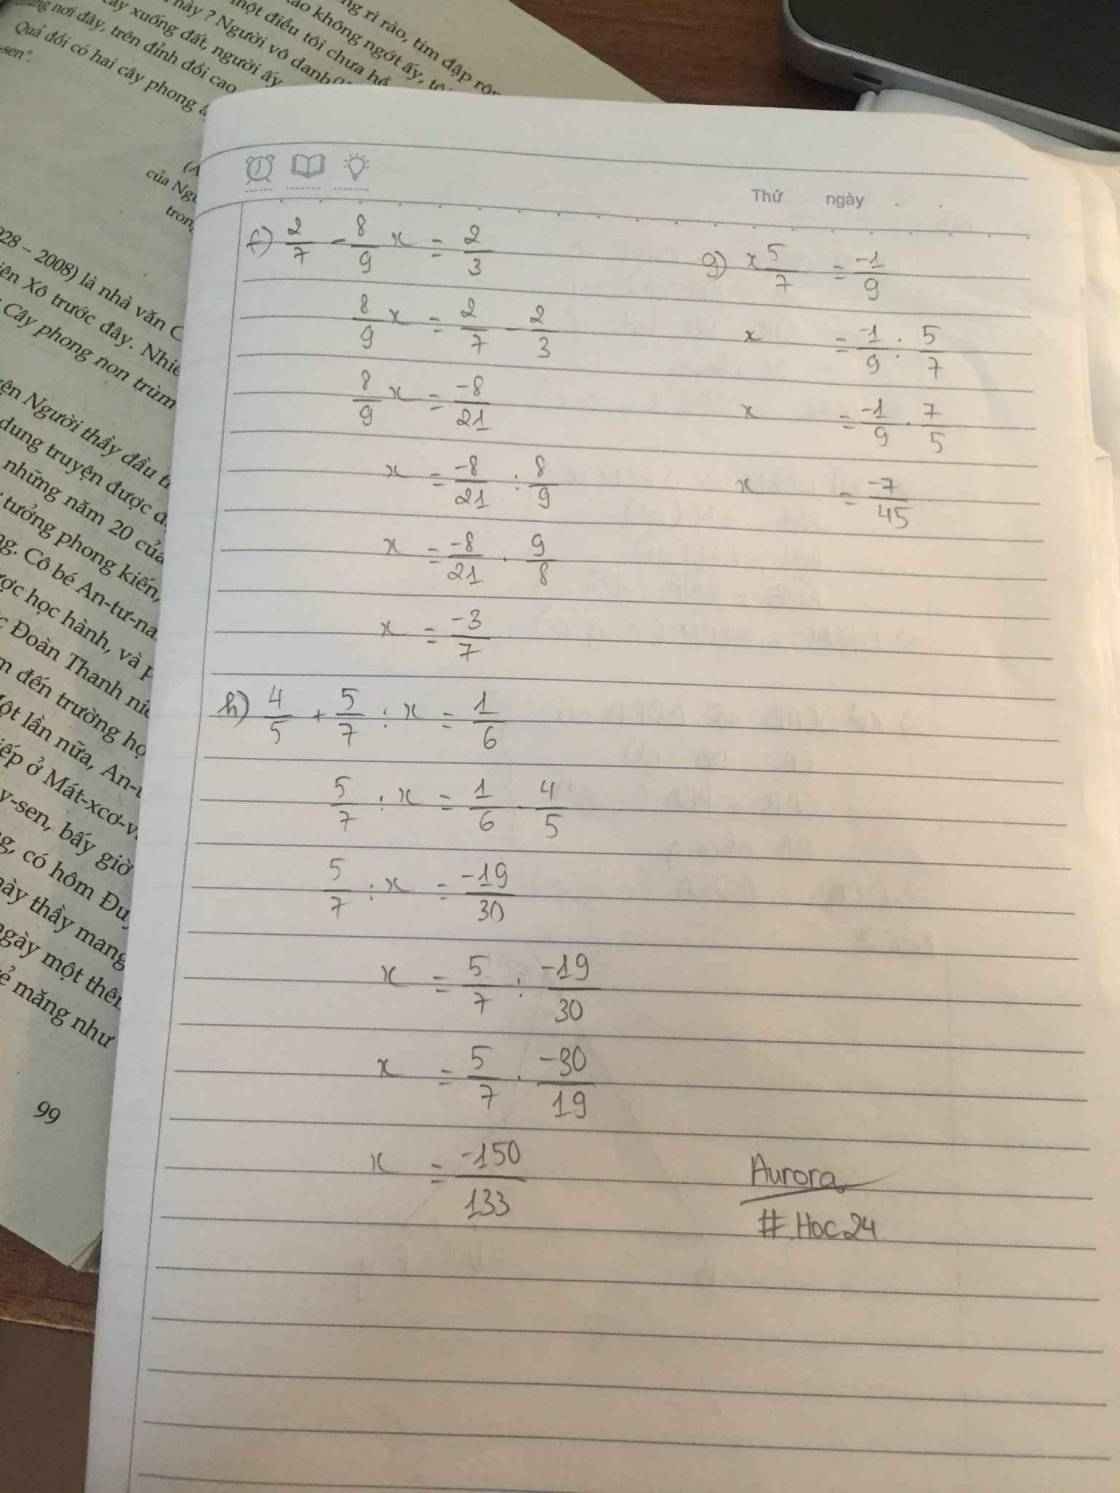 ng rì rào, tim đập rộn
ào không ngớt ấy,
một điều tôi chưa
này ? Người vô danh
ây xuống đất, người ấy
nơi đây, trên đỉnh đồi cao
Quả đồi có hai cây phong
-sen".
của
928 – 2008) là nhà văn
ên Xô trước đây.
Cây phong non trùm
ện Người thầy đầu
dung truyện được
những năm 20 của
tưởng phong kiến,
ng. Cô bé An-tư-na
ợc học hành, và
Đoàn Thanh
m đến trường
ột lần nữa,
iếp ở Mát-xcơ-v
y-sen, bấy giờ
g, có hôm
này thầy mang
ngày một
ẻ măng như
99
Thứ ngày
f) 2/7 - 8/9 x = 2/3
8/9 x = 2/7 - 2/3
8/9 x = -8/21
x = -8/21 : 8/9
x = -8/21 . 9/8
x = -3/7
g) x 5/7 = -1/9
x = -1/9 : 5/7
x = -1/9 . 7/5
x = -7/45
h) 4/5 + 5/7 : x = 1/6
5/7 : x = 1/6 - 4/5
5/7 : x = -19/30
x = 5/7 : -19/30
x = 5/7 . -30/19
x = -150/133
Aurora
#.Hoc24